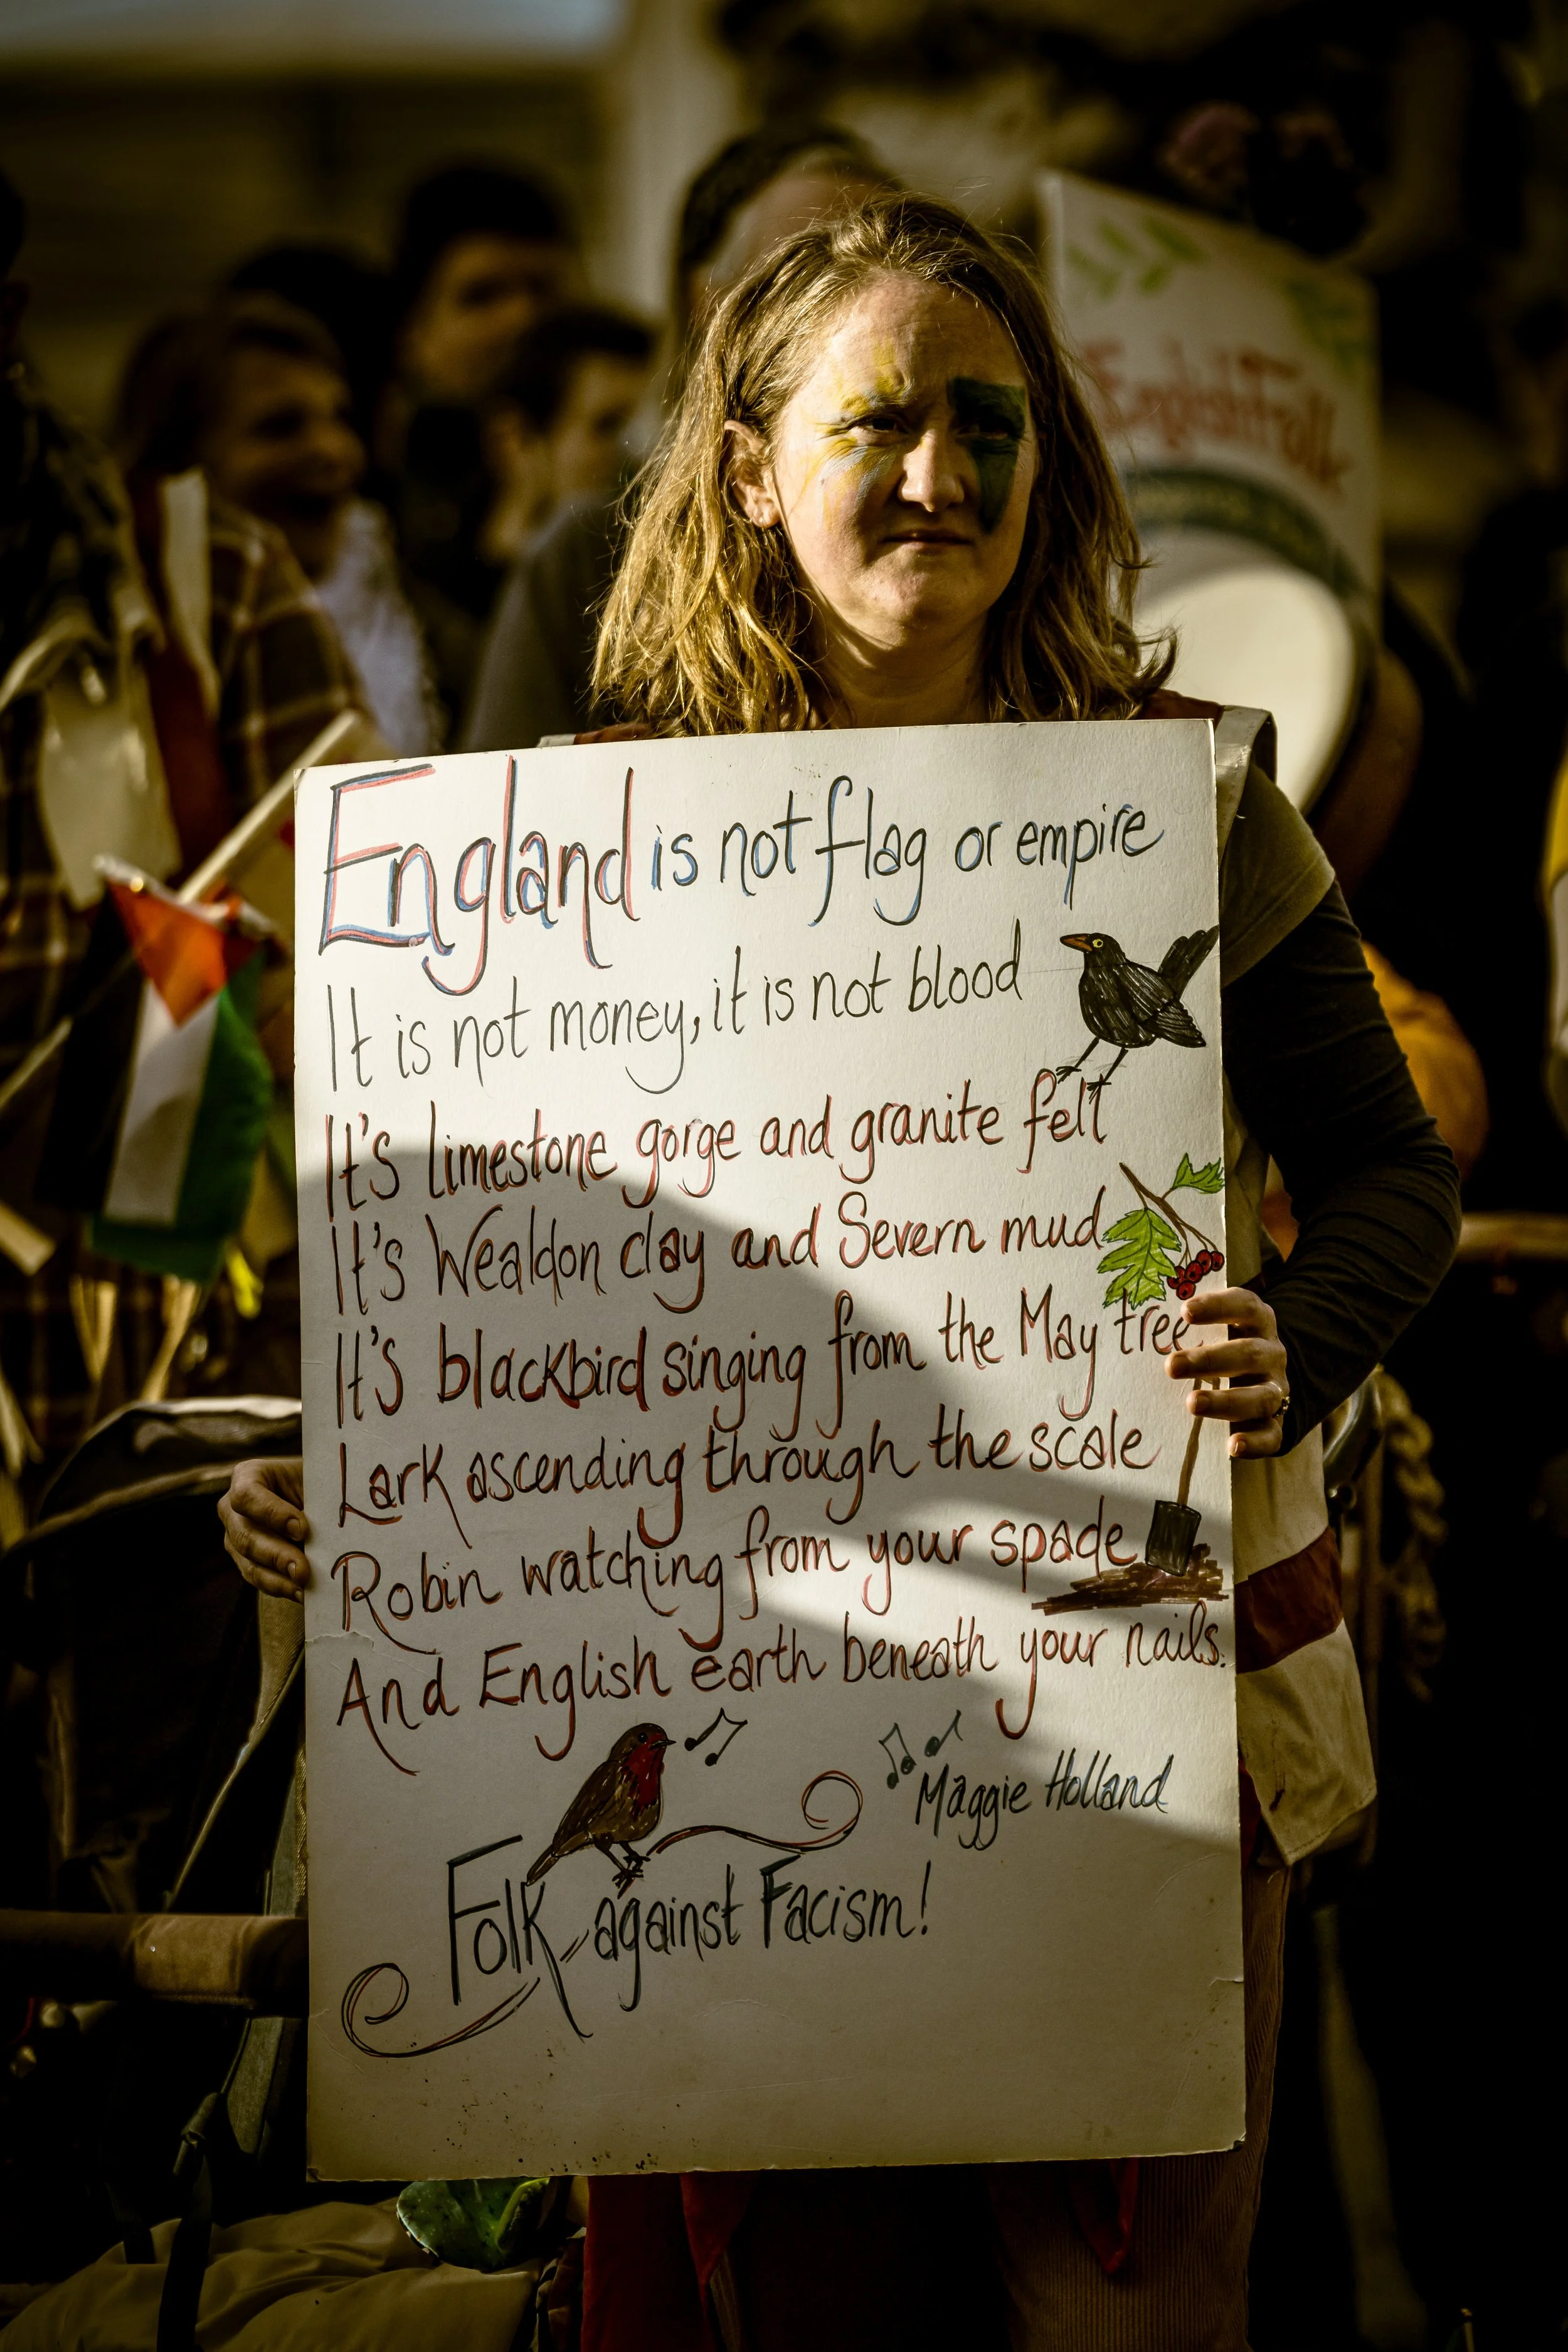 England is not flag or empire
It is not money, it is not blood
It's limestone gorge and granite fell
It's Wealdon clay and Severn mud
It's blackbird singing from the May tree
Lark ascending through the scale
Robin watching from your spade
And English earth beneath your nails.
Maggie Holland
Folk against Facism!